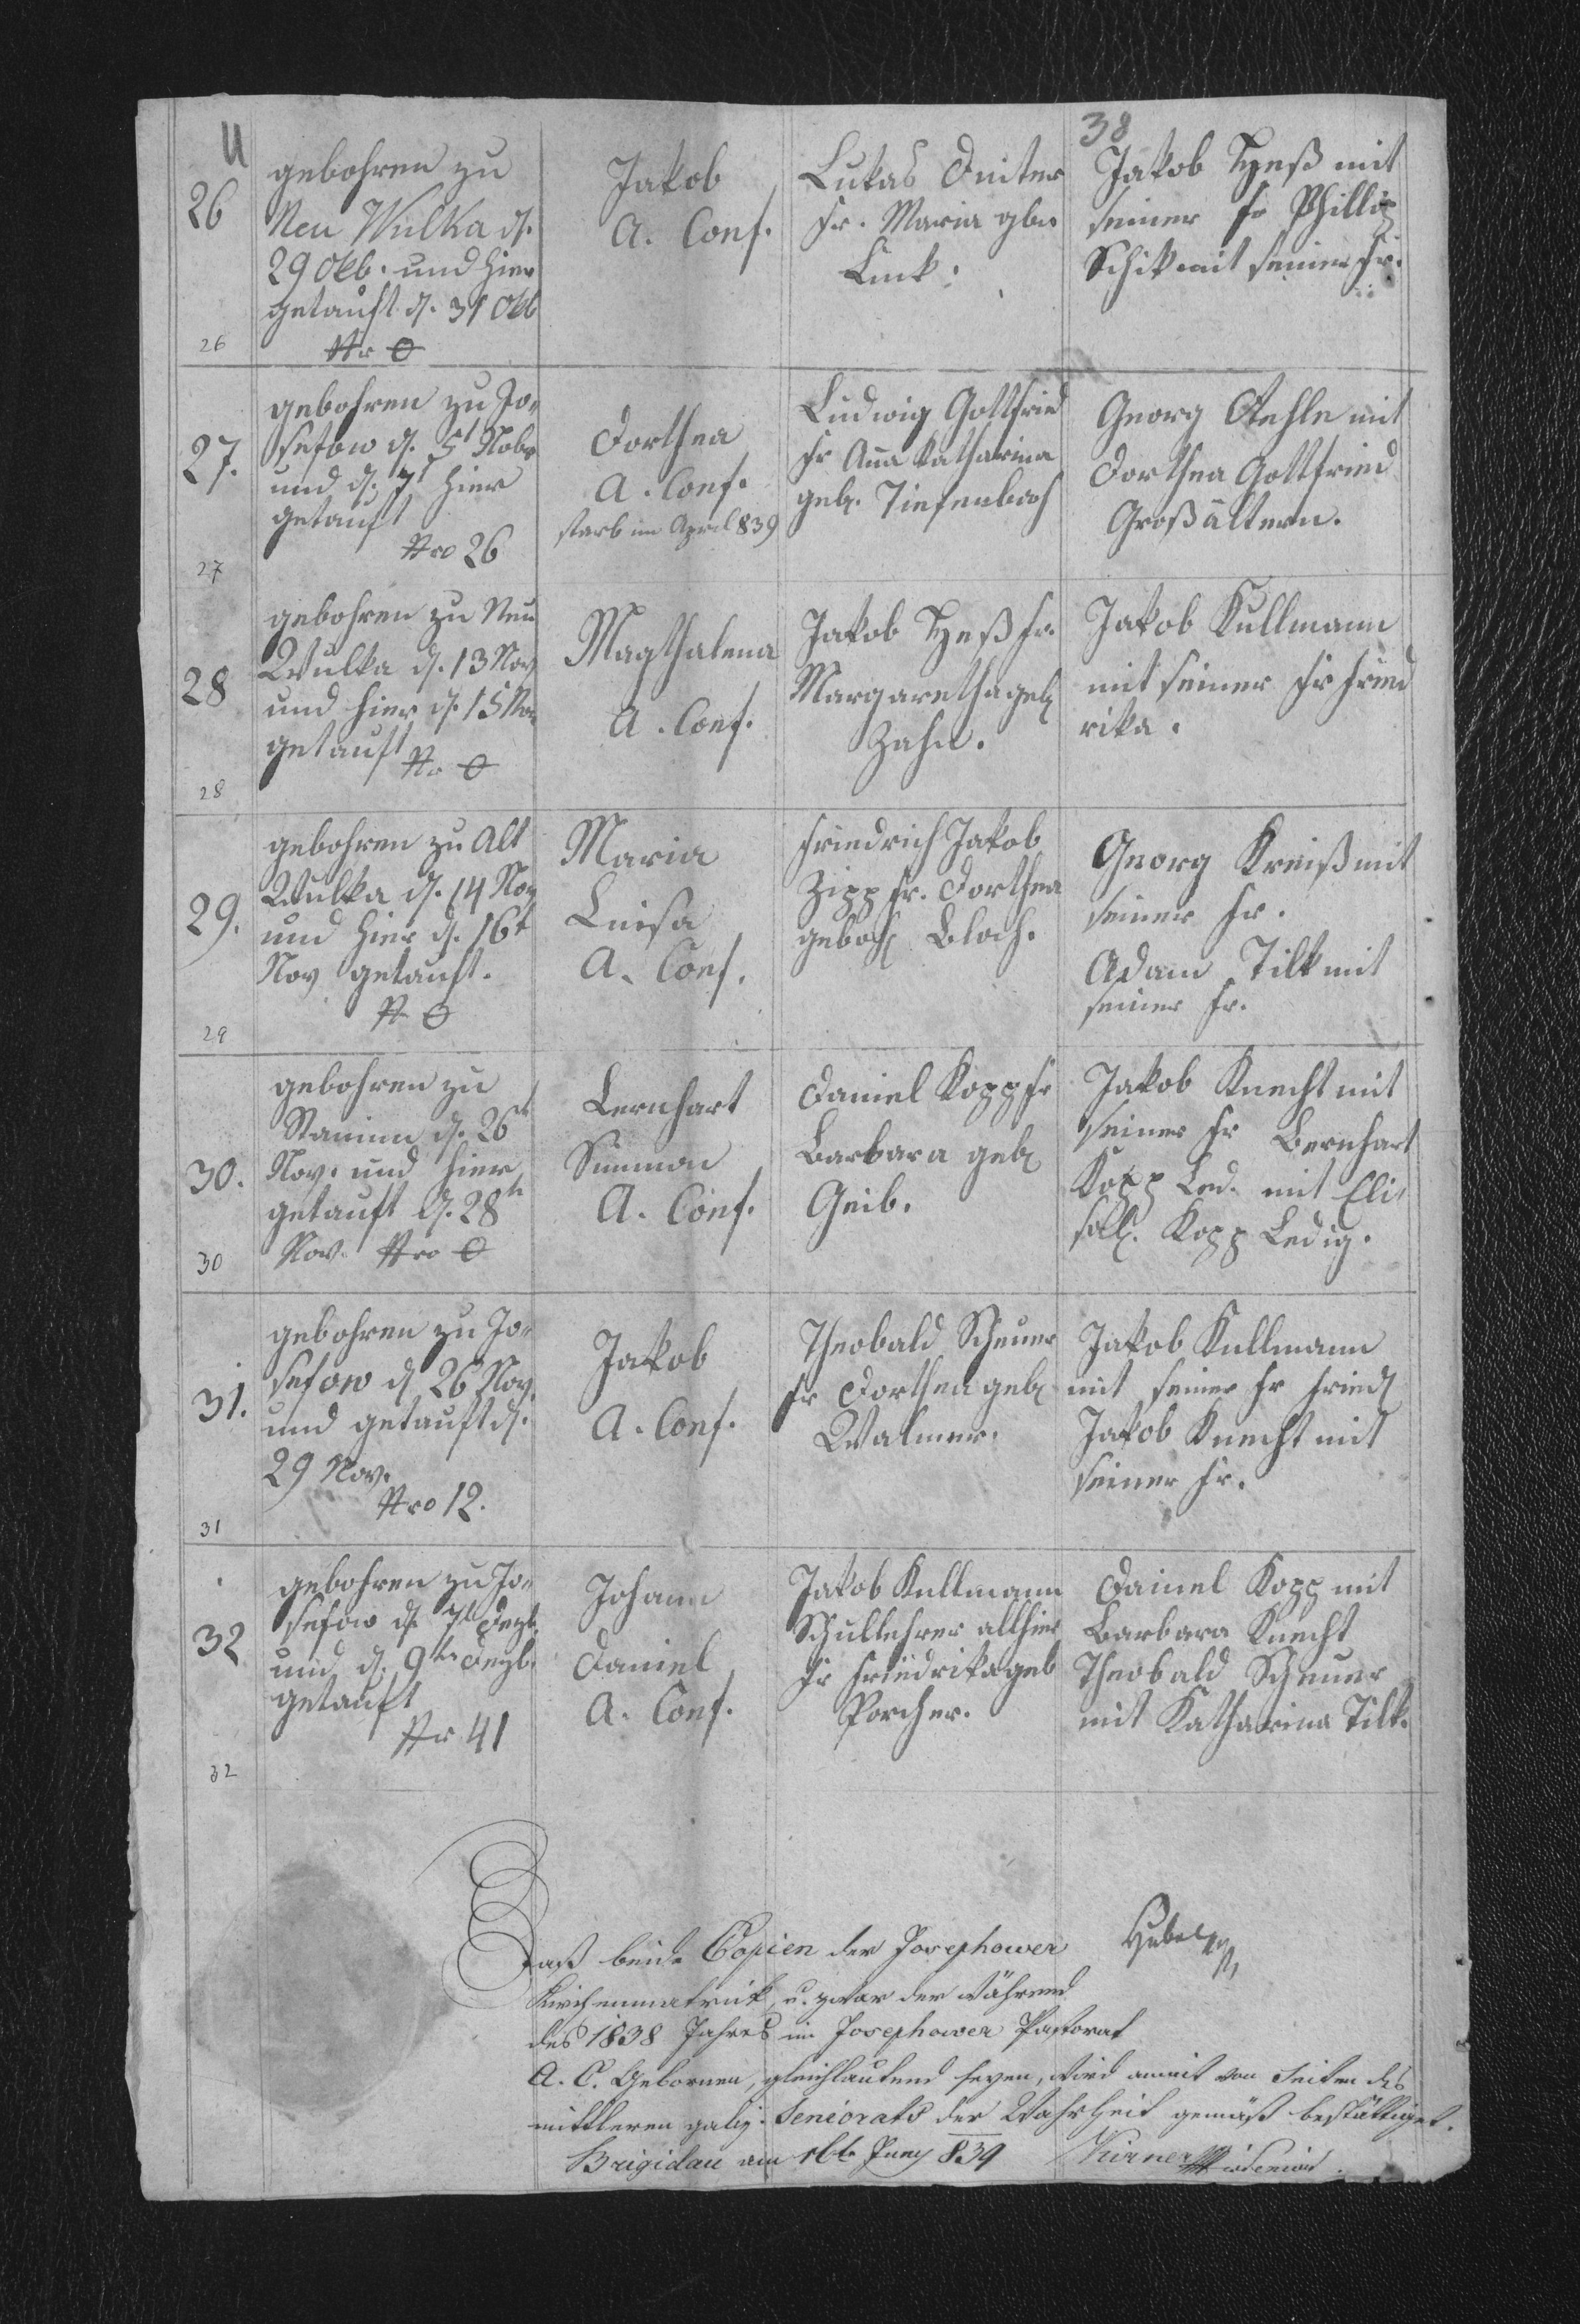 U
38
26
gebohren zu
Neu Wulka d.
29 Okb. und hier
getauft d. 31 Okb
Nr 0
26
Jakob
A. Conf.
Lukas Duiter
Fr. Maria gbn
Link.
Jakob Heß mit
seiner Fr Phillip
Schik mit seiner Fr.
27.
gebohren zu Jo„
sefow d. 5t Nobr
und d. 7t hier
getauft
Nro 26
27
Dorthea
A. Conf.
starb im April 839
Ludwig Gottfried
Fr Ana Katharina
geb. Tiefenbach
Georg Oehle mit
Dorthea Gottfried
Großältern.
28
gebohren zu Neu
Wulka d. 13 Nov
und hier d. 15 Nov
getauft
Nr 0
28
Magthalena
A. Conf.
Jakob Heß Fr.
Margaretha geb
Zahn.
Jakob Kullmann
mit seiner Fr Fried
rika.
29.
gebohren zu Alt
Wulka d. 14 Nov
und hier d. 16t
Nov getauft.
N 0
29
Maria
Luisa
A. Conf.
Friedrich Jakob
Zipp Fr. Dorthea
geboh Bloch.
Georg Kreiß mit
seiner Fr.
Adam Tilk mit
seiner Fr.
30.
gebohren zu
Stanin d. 26t
Nov. und hier
getauft d. 28tn
Nov. Nro 0
30
Bernhart
Simmon
A. Conf.
Daniel Kopp Fr
Barbara geb
Geib.
Jakob Knecht mit
seiner Fr Bernhart
Kopp Led. mit Eli„
sab. Kopp Ledig.
31.
gebohren zu Jo„
sefow d 26 Nov.
und getauft d.
29 Nov.
Nro 12.
31
Jakob
A. Conf.
Theobald Scheuer
Fr Dorthea geb
Walmer.
Jakob Kullmann
mit seiner Fr Fried
Jakob Knecht mit
seiner Fr.
32
gebohren zu Jo„
sefow d. 7t Dezb.
und d. 9tn Dezb.
getauft
Nr 41
32
Johann
Daniel
A. Conf.
Jakob Kullmann
Schullehrer allhier
Fr Friedrika geb
Porcher.
Daniel Kopp mit
Barbara Knecht
Theobald Scheuer
mit Katharina Tilk.
Hubel
Daß beide Copien der Josephower
Kirchenmatrik, u. zwar der während
des 1838 Jahres im Josephower Pastorat
A. C. Gebornen, gleichlautend seyen, wird anmit von Seiten des
mittleren galiz. Seniorats der Wahrheit gemäß bestättiget.
Brigidau am 16t Juny 839